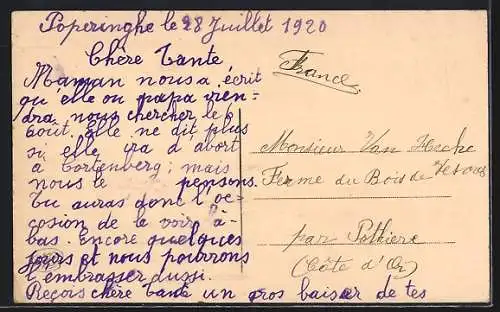 Poperinghe le 28 Juillet 1920
Chère Tante
Maman nous a écrit
qu'elle ou papa vien=
dra nous chercher le 6
août. Elle ne dit plus
si elle ira d'abort
à Cortenberg; mais
nous le pensons.
Tu auras donc l'oc=
casion de le voir à=
bas. Encore quelques
jours et nous pourrons
t'embrasser aussi.
Reçois chère tante un gros baiser de tes
France
Monsieur Van
Ferme du Bois de
par Pothière
(Côte d'Or)